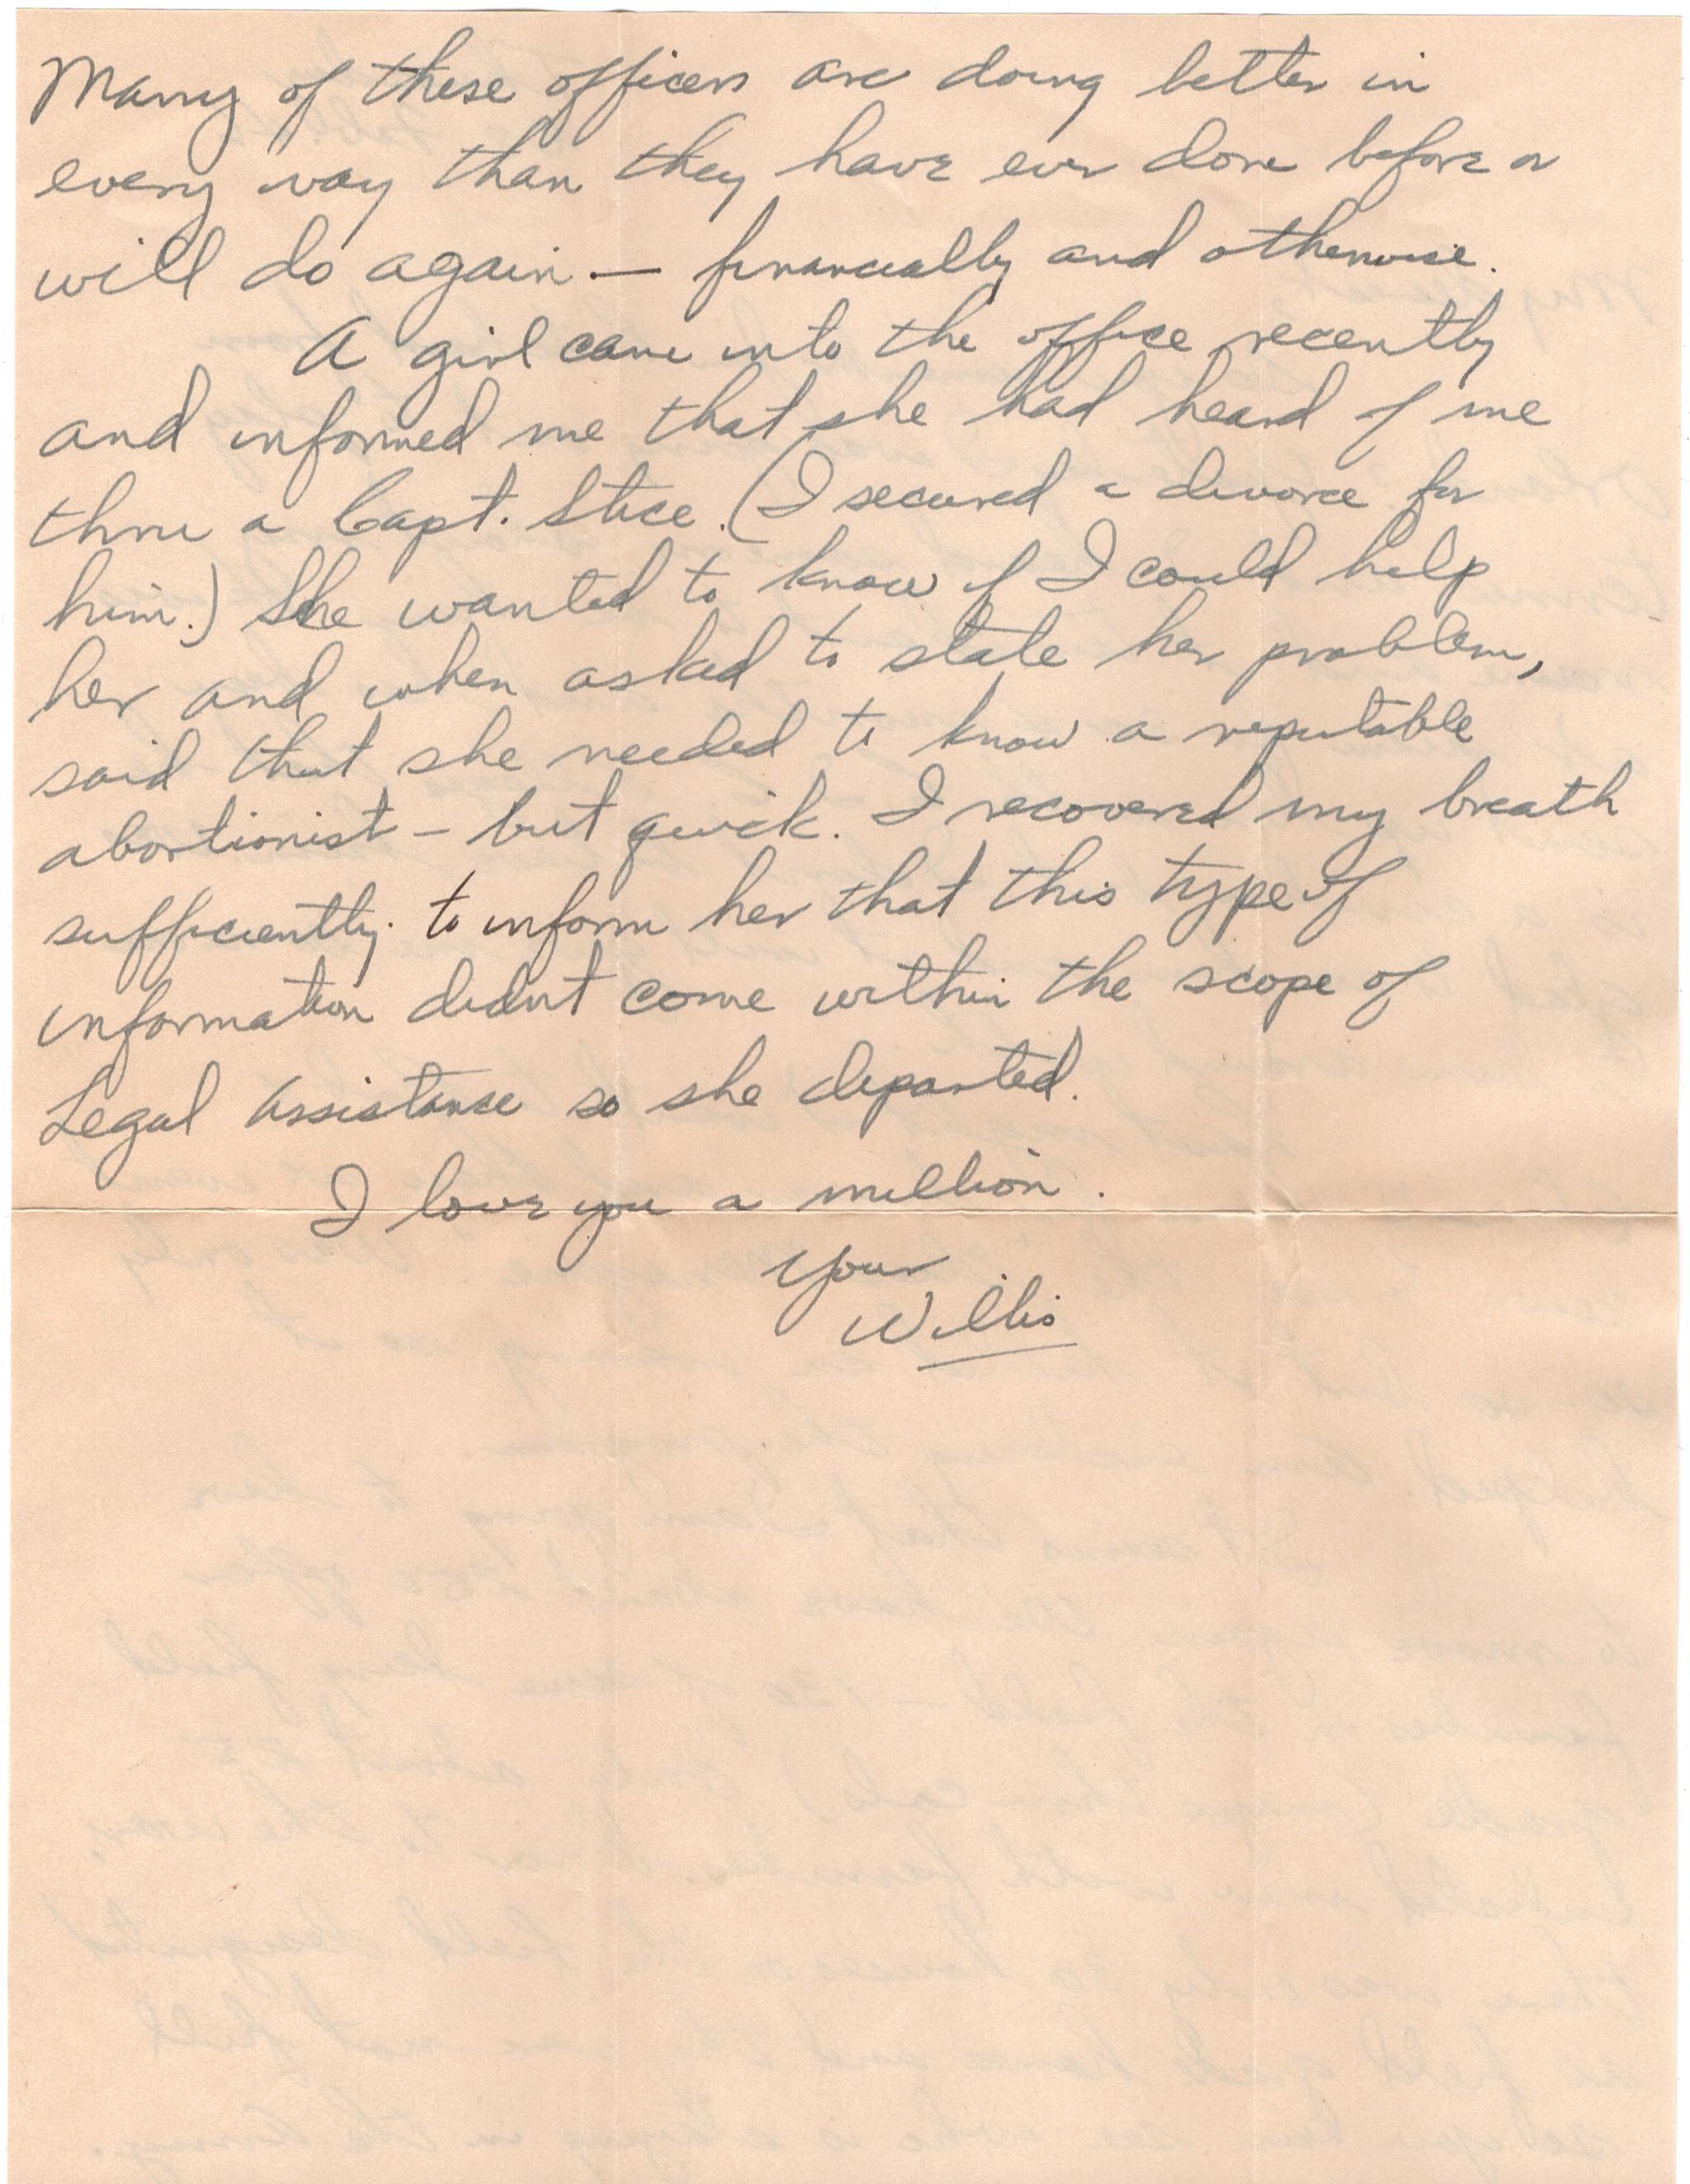 Many of these officers are doing better in
every way than they have ever done before or
will do again — financially and otherwise.
A girl came into the office recently
and informed me that she had heard of me
thru a Capt. Stice. (I secured a divorce for
him.) She wanted to know if I could help
her and when asked to state her problem,
said that she needed to know a reputable
abortionist - but quick. I recovered my breath
sufficiently to inform her that this type of
information didn't come within the scope of
Legal Assistance so she departed.
I love you a million.
Your
Willis